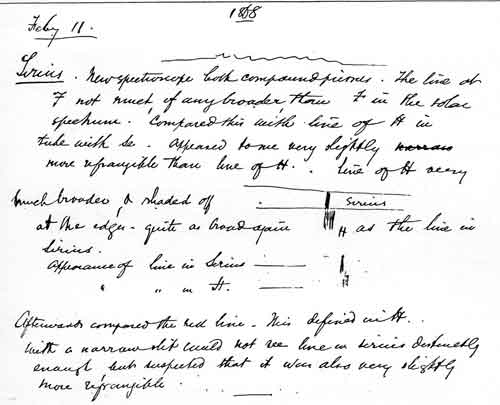 1868
Feby 11.
Sirius. New spectroscope both compound prisms. The line at
F not much if any broader than F in the solar
spectrum. Compared this with line of H in
tube with Se. Appeared to me very slightly
more refrangible than line of H. Line of H very
much broader & shaded off
Sirius
at the edges - quite as broad again H as the line in
Sirius.
Appearance of line in Sirius
" " in H.
Afterwards compared the red line. This defined in H.
With a narrow slit could not see line in Sirius distinctly
enough, but suspected that it was also very slightly
more refrangible.